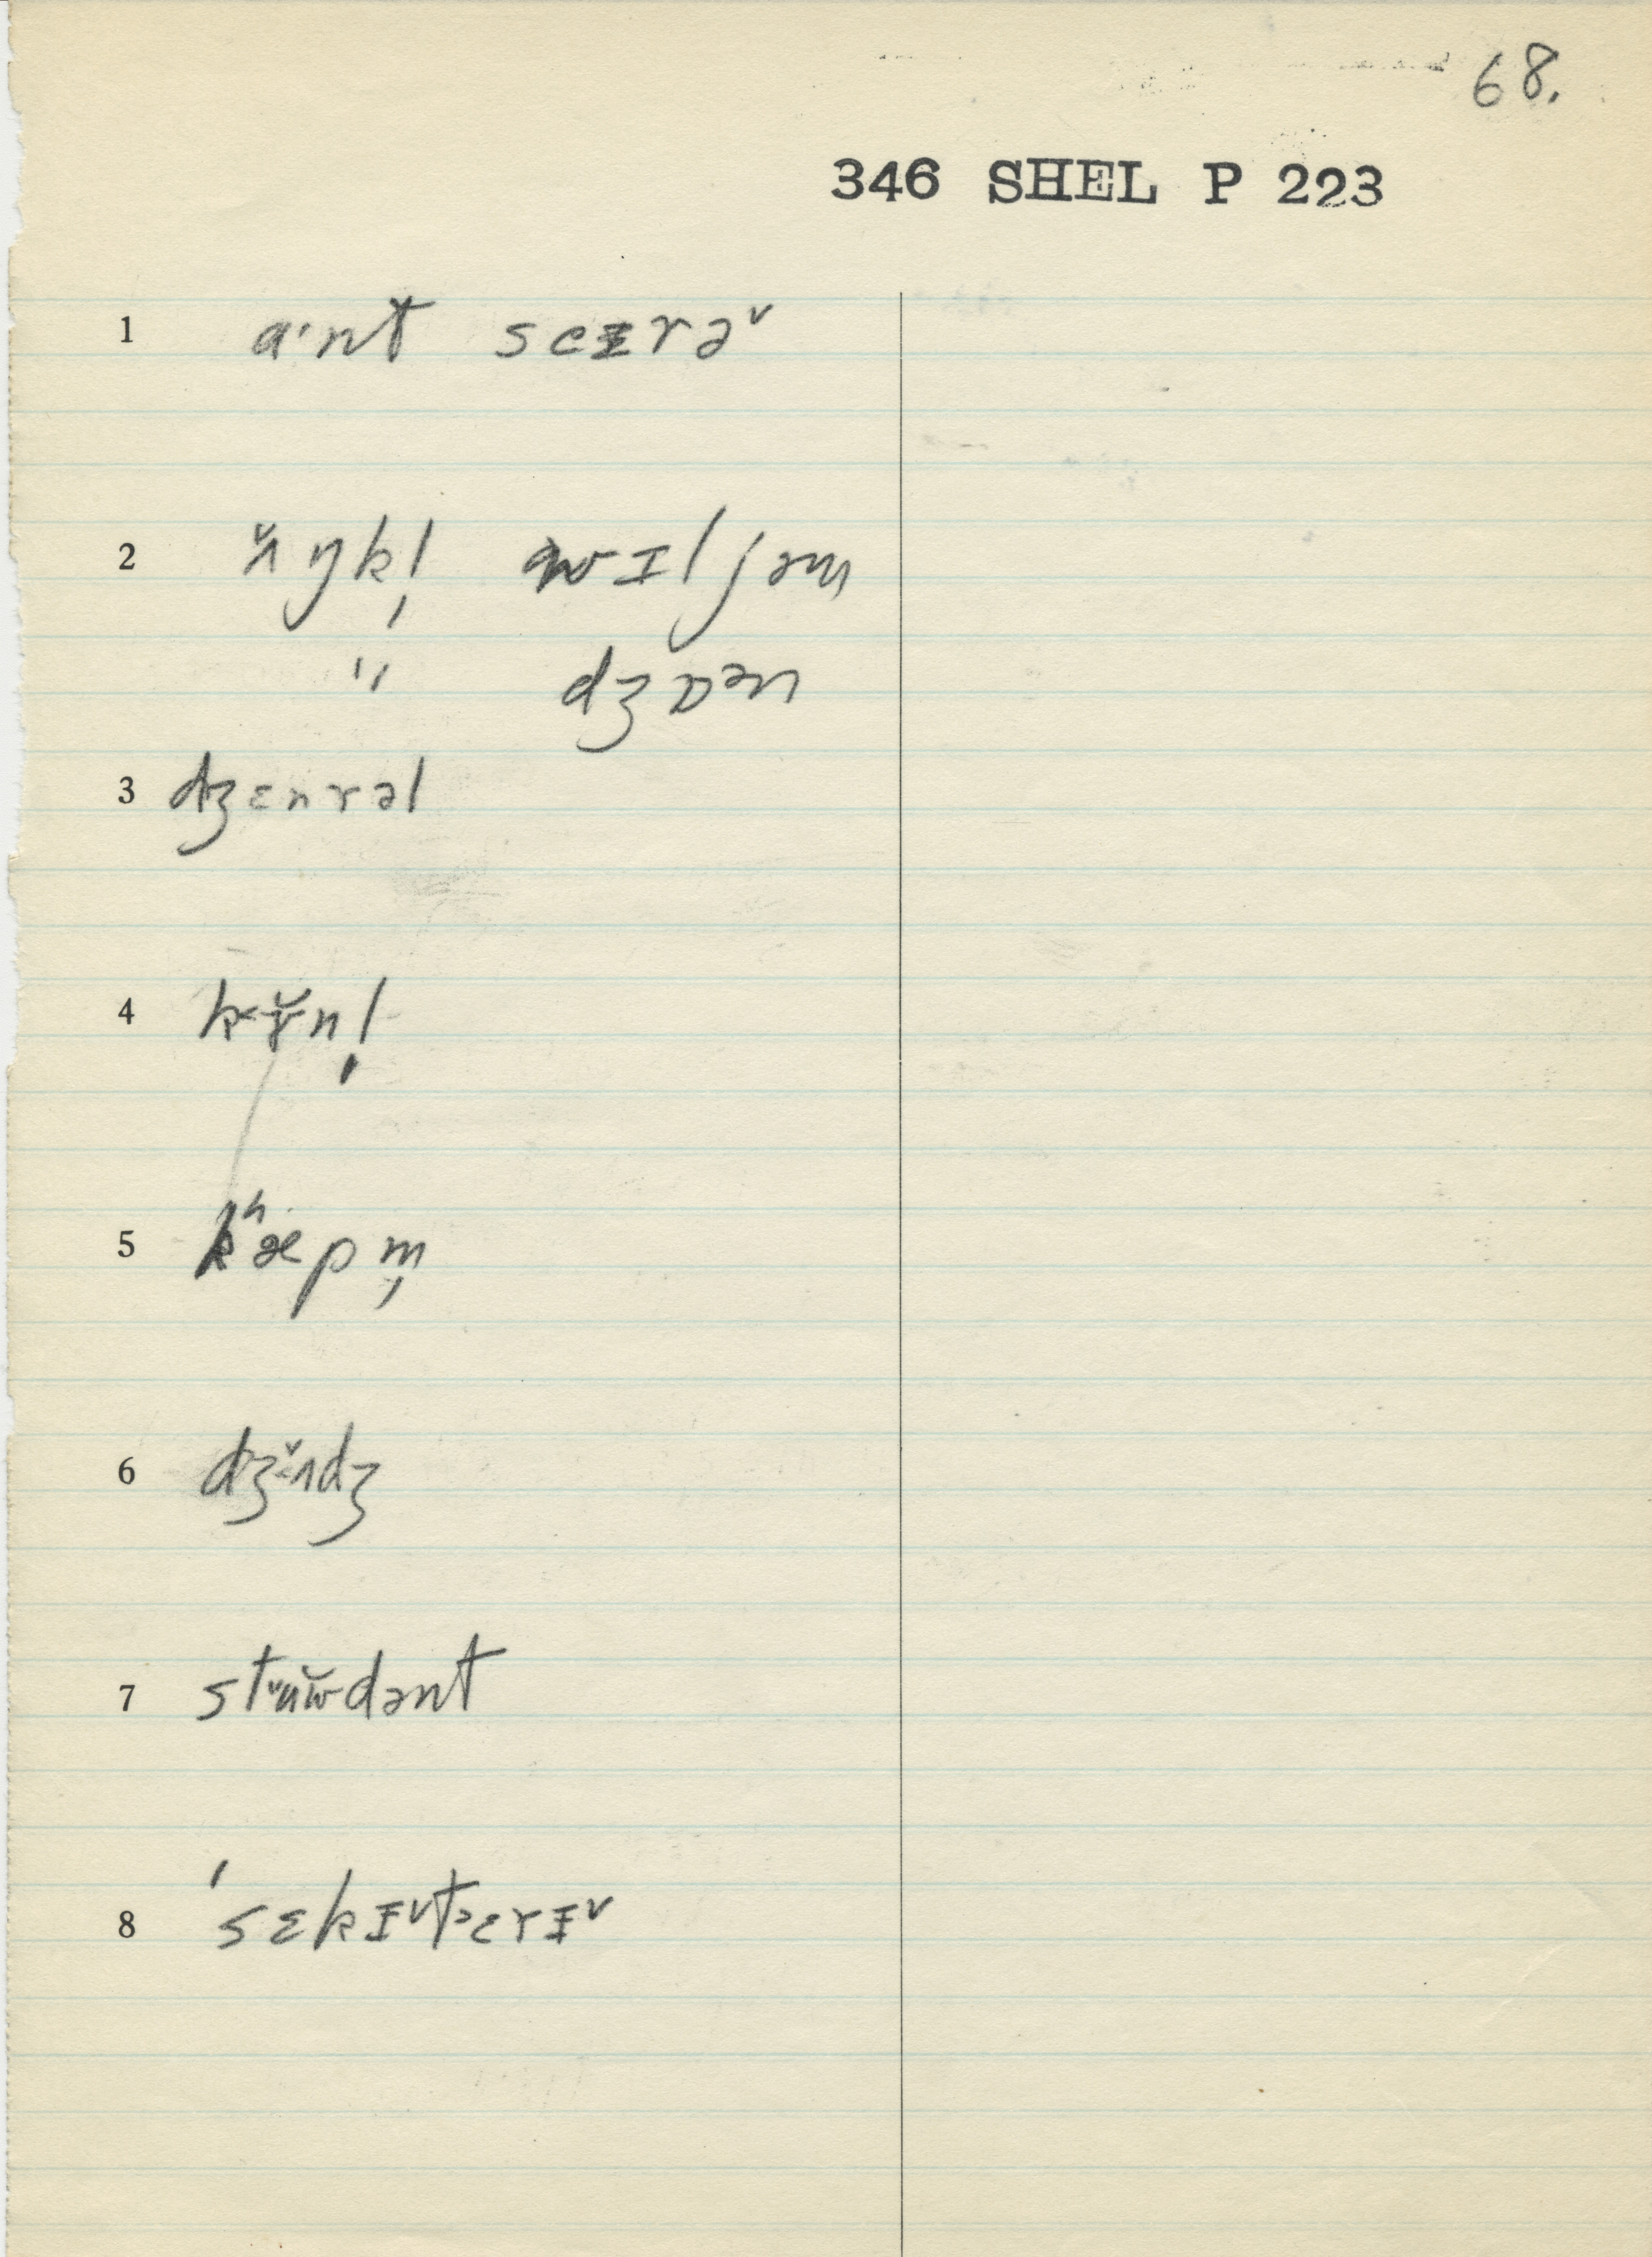 68.
346 SHEL P 223
1 a·nt sɛɪrə˅
2 ʌ̌ŋkl̩ wɪljəm
" dʒɒən
3 dʒɛnrəl
4 kɤ̌nl̩
5 kʰæpm̩
6 dʒʌ̌dʒ
7 stʉw̌dənt
8 'sɛkɪ˅tɛrɪ˅